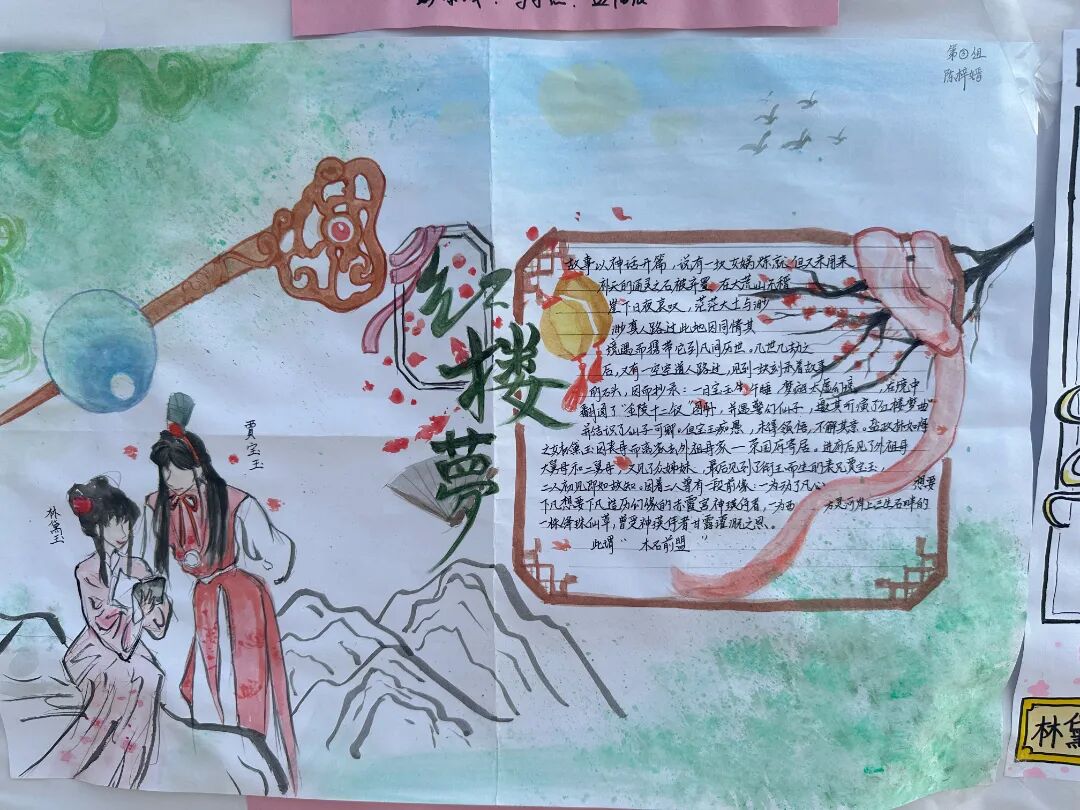 第③组
陈梓嫣
红楼梦
贾宝玉
林黛玉
故事以神话开篇，说有一块女娲炼就但又未用来
补天的通灵之石被弃置在大荒山无稽
崖下日夜哀叹，茫茫大士与渺
渺真人路过此地因同情其
境遇而携带它到凡间历世。几世几劫之
后，又有一空空道人路过，见到一块刻录着故事
的石头，因而抄录：一日宝玉午睡，梦
翻阅了“金陵十二钗”图册，并遇警幻仙子，邀其听演了红楼梦曲
并结识了仙子可卿。但宝玉痴愚，未得领悟，不解其意。
之女林黛玉因丧母而离家去外祖母家一荣国府寄居。进府后见了外祖母
大舅母和二舅母，又见了众姊妹，最后见到了衔玉而生的表兄贾宝玉，
二人初见即如故知。因着二人曾有一段前缘：一为动了凡心 想要
下凡想要下凡造历幻缘的赤霞宫神瑛侍者，一为西 方灵河岸上三生石畔的
一株绛珠仙草，曾受神瑛侍者甘露灌溉之恩。
此谓“木石前盟”
林黛